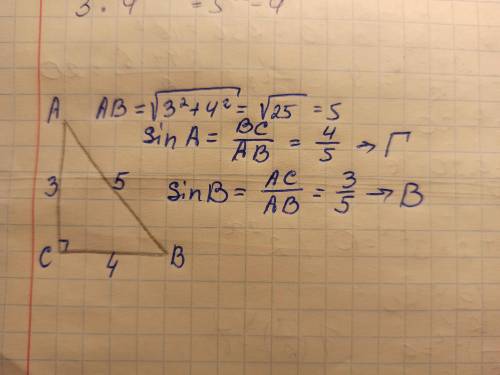 3 · 4 = 5 - 4
A AB = √3²+4² = √25 = 5
sin A = BC/AB = 4/5 → Г
3 5 sin B = AC/AB = 3/5 → В
C 4 B